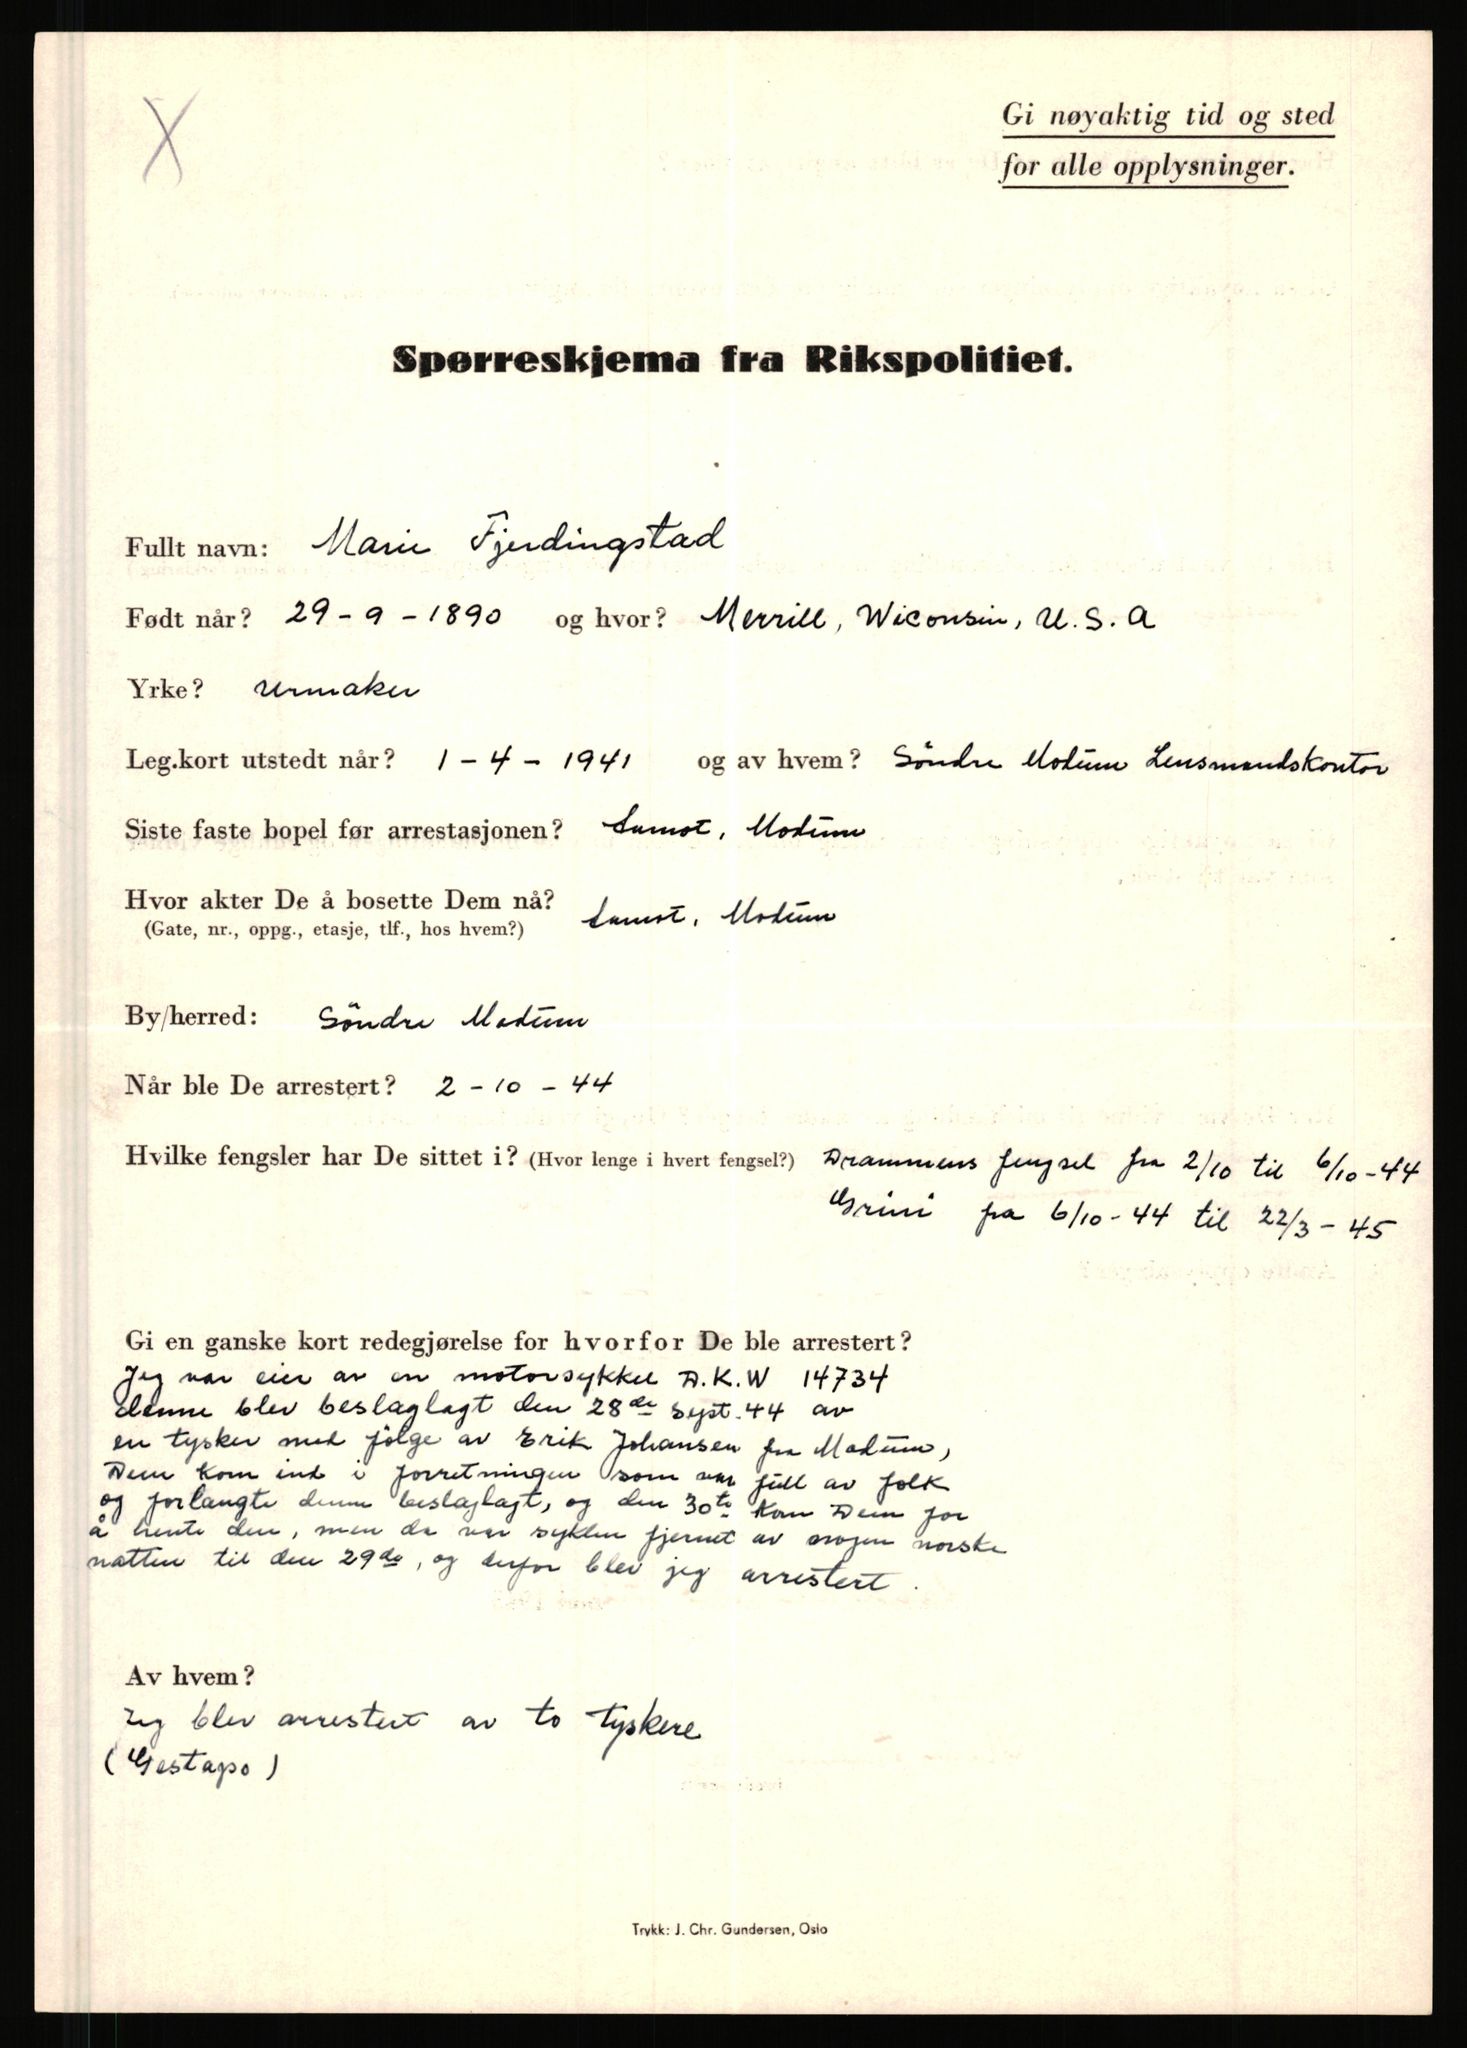 Gi nøyaktig tid og sted
for alle opplysninger.
Spørreskjema fra Rikspolitiet.
Fullt navn: Marie Fjerdingstad
Født når? 29-9-1890 og hvor? Merrill, Wiconsin, U.S.A
Yrke? Urmaker
Leg.kort utstedt når? 1-4-1941 og av hvem? Söndre Modum Lensmandskontor
Siste faste bopel før arrestasjonen? Åmot, Modum
Hvor akter De å bosette Dem nå? Åmot, Modum
(Gate, nr., oppg., etasje, tlf., hos hvem?)
By/herred: Söndre Modum
Når ble De arrestert? 2-10-44
Hvilke fengsler har De sittet i? (Hvor lenge i hvert fengsel?) Drammens fengsel fra 2/10 til 6/10-44
Grini fra 6/10-44 til 22/3-45
Gi en ganske kort redegjørelse for hvorfor De ble arrestert?
Jeg var eier av en motorsykkel D.K.W 14734
denne blev beslaglagt den 28de sept. 44 av
en tysker med fölge av Erik Johansen fra Modum,
Dem kom ind i forretningen som var full av folk
og forlangte denne beslaglagt, og den 30te kom Dem for
å hente den, men da var syklen fjernet av nogen norske
natten til den 29de, og derfor blev jeg arrestert.
Av hvem?
Jeg blev arrestert av to tyskere
(Gestapo)
Trykk: J. Chr. Gundersen, Oslo